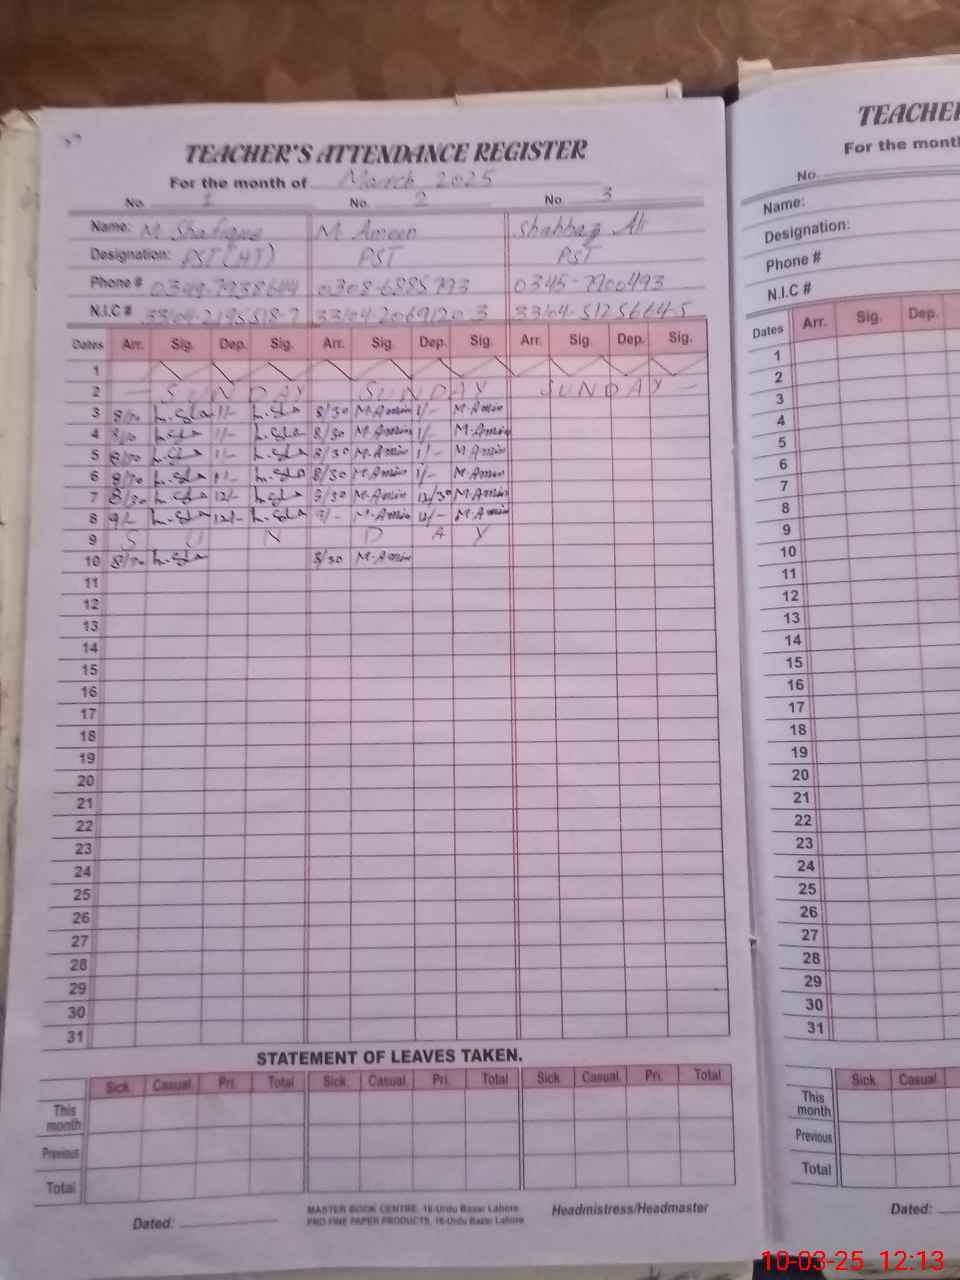 TEACHER'S ATTENDANCE REGISTER
For the month of March 2025
No. 1 No. 2 No. 3
Name: M Shafique M Ameen Shahbaz Ali
Designation: PST (HT) PST PST
Phone # 0349-7938644 0308-6885793 0345-7900493
N.I.C # 33104-2195518-7 33104-2069120-3 33104-5125664-5
Dates Arr. Sig. Dep. Sig. Arr. Sig. Dep. Sig. Arr. Sig. Dep. Sig.
1
2 — SUNDAY SUNDAY SUNDAY —
3 1/- 8/30 M.Amin 1/- M.Amin
4 1/- 8/30 M.Amin 1/- M.Amin
5 1/- 8/30 M.Amin 1/- M.Amin
6 1/- 8/30 M.Amin 1/- M.Amin
7 8/30 12/- M.Amin 12/30 M.Amin
8 12/- M.Amin M.Amin
9 S U N D A Y
10 8/30 M.Amin
11
12
13
14
15
16
17
18
19
20
21
22
23
24
25
26
27
28
29
30
31
STATEMENT OF LEAVES TAKEN.
Sick Casual Pri. Total Sick Casual Pri. Total Sick Casual Pri. Total
This month
Previous
Total
MASTER BOOK CENTRE, 16-Urdu Bazar Lahore
PRO FINE PAPER PRODUCTS, 16-Urdu Bazar Lahore
Dated: Headmistress/Headmaster
TEACHER
For the month
No.
Name:
Designation:
Phone #
N.I.C #
Dates Arr. Sig. Dep.
1
2
3
4
5
6
7
8
9
10
11
12
13
14
15
16
17
18
19
20
21
22
23
24
25
26
27
28
29
30
31
Sick Casual
This month
Previous
Total
Dated:
10-03-25 12:13